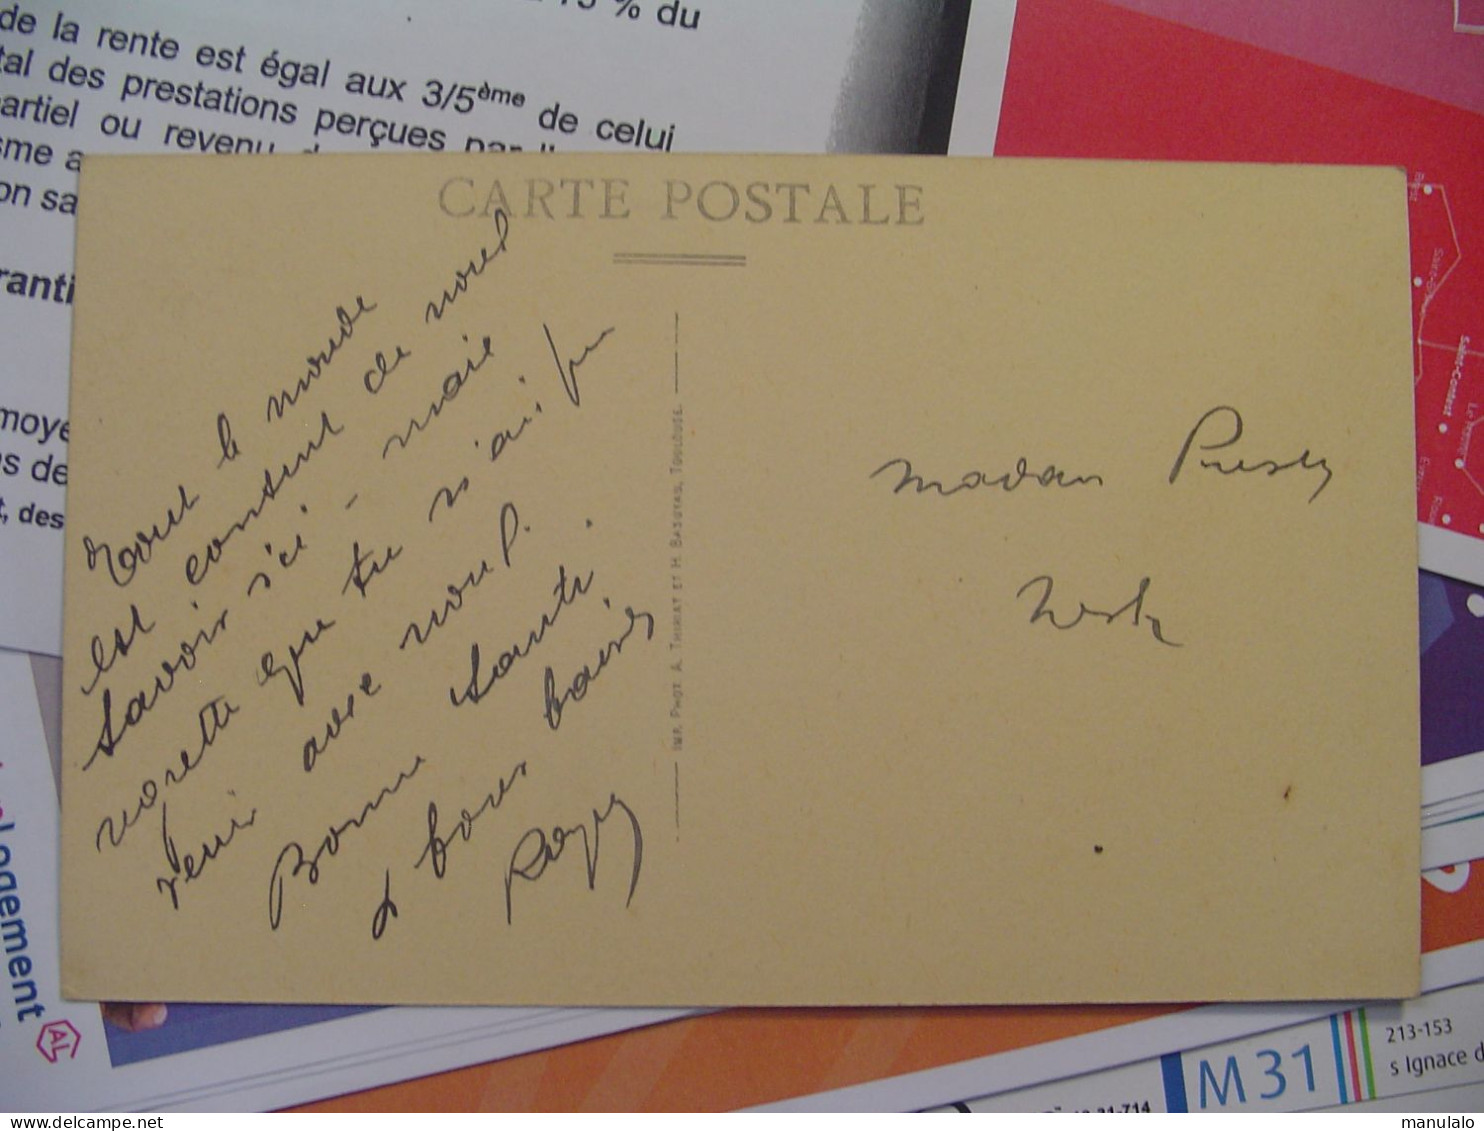 % du
de la rente est égal aux 3/5ème de celui
tal des prestations perçues par
artiel ou revenu
sme a
on sa
ranti
moye
s de
t, des
CARTE POSTALE
Tout le monde
est content de nous
savoir ici - mais
regrette que tu n'ai pu
venir avec nous.
Bonne santé.
& bons baisers
Roger
IMP. PHOT. A. THIRIAT ET H. BASUYAU, TOULOUSE.
Madam
Logement
AL
M 31
213-153
s Ignace d
21-714
manulalo